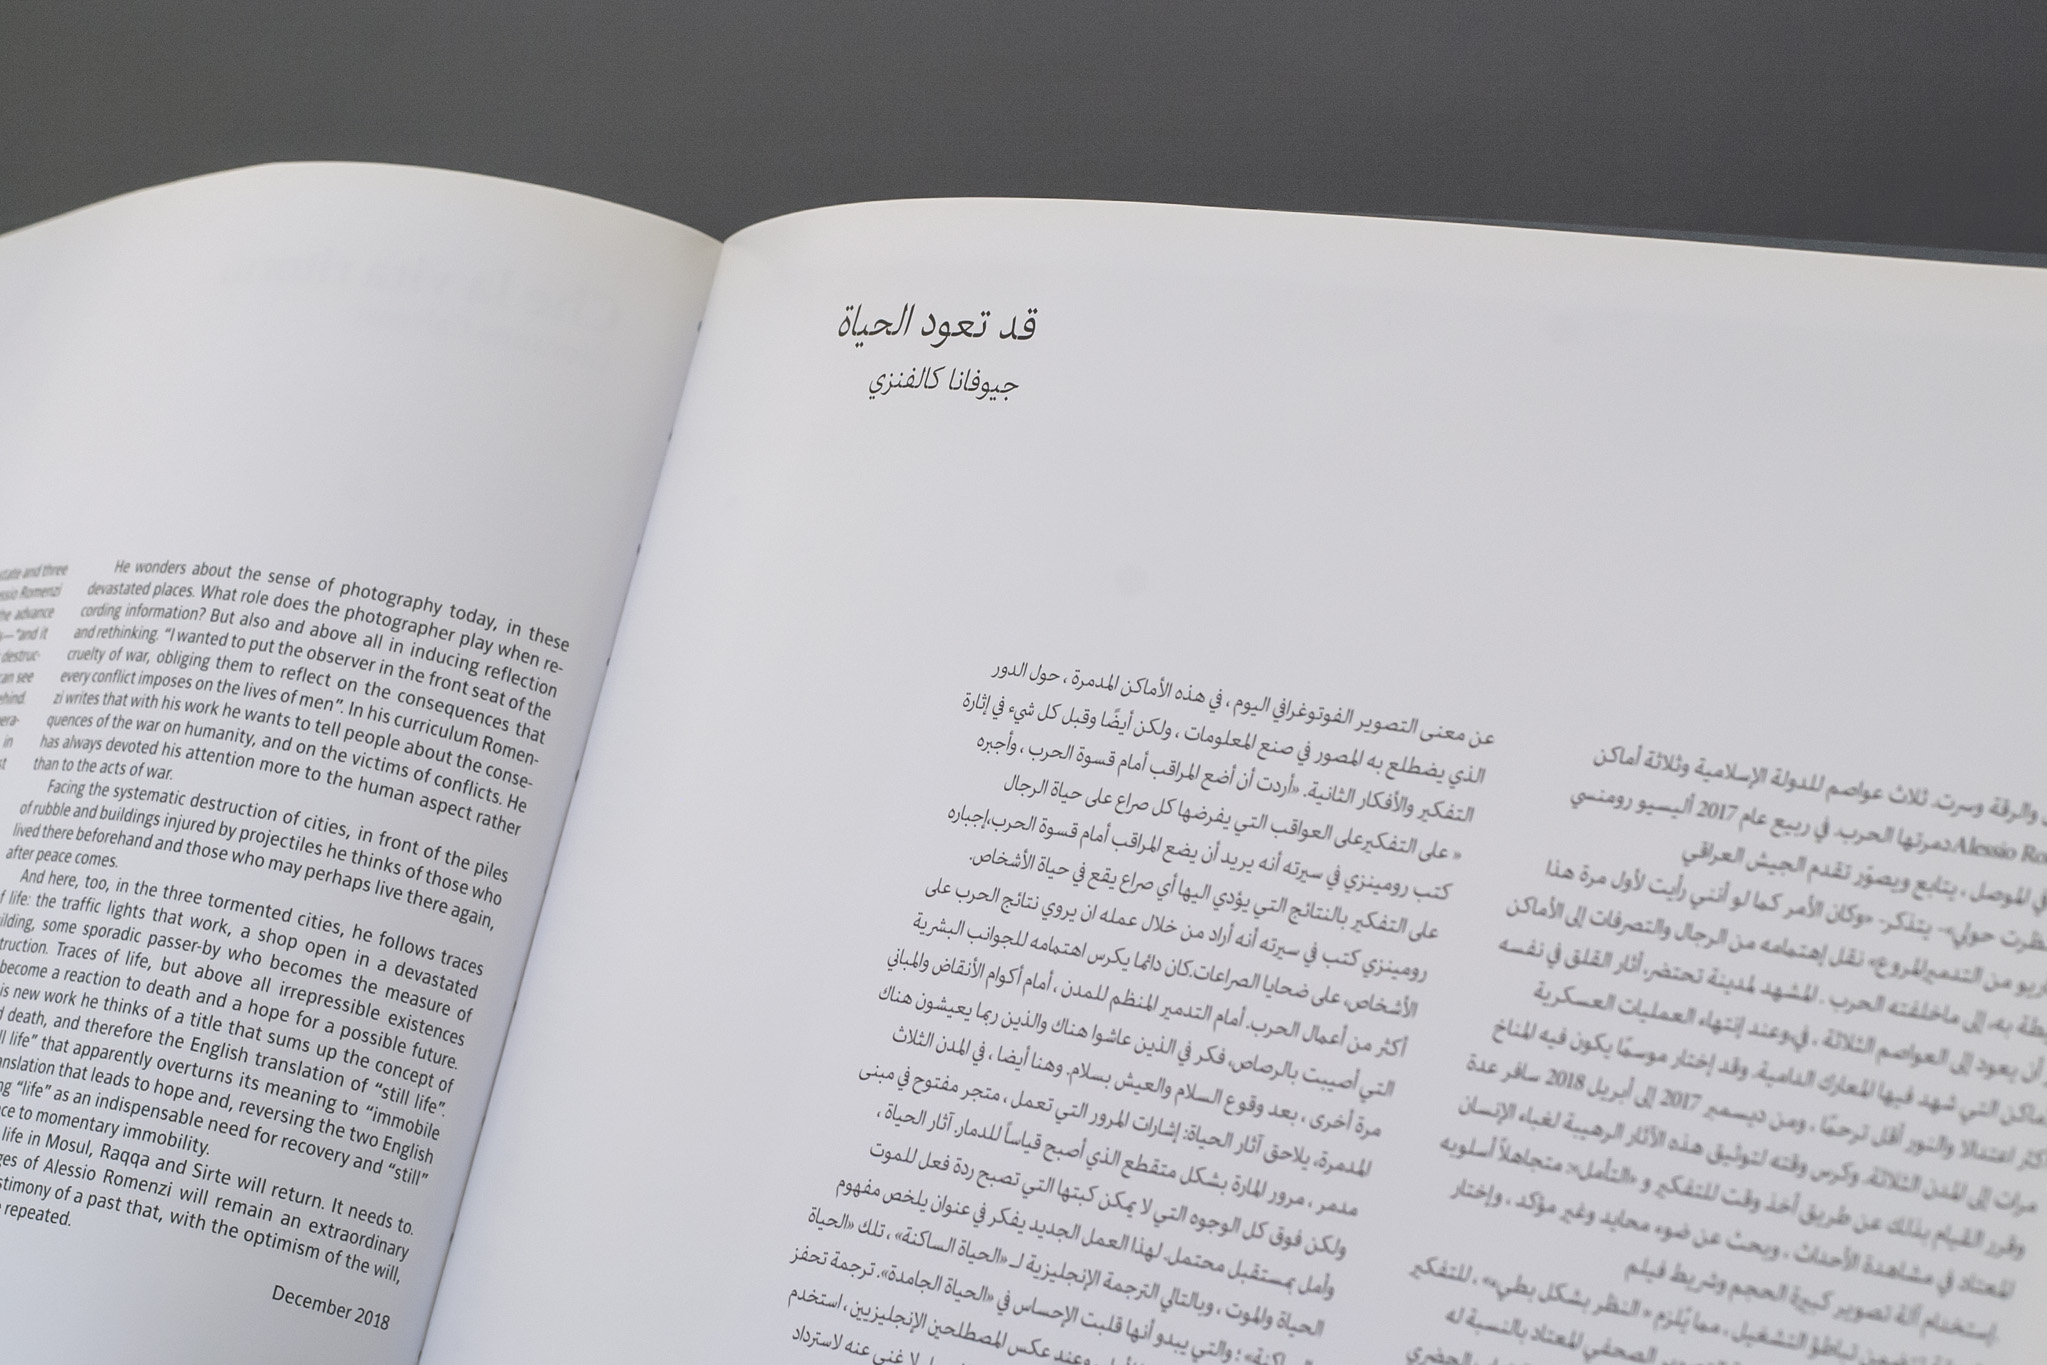 state and three
essio Romenzi
the advance
"and it
destruc-
can see
ehind.
era-
in
He wonders about the sense of photography today, in these
devastated places. What role does the photographer play when re-
cording information? But also and above all in inducing reflection
and rethinking. "I wanted to put the observer in the front seat of the
cruelty of war, obliging them to reflect on the consequences that
every conflict imposes on the lives of men". In his curriculum Romen-
zi writes that with his work he wants to tell people about the conse-
quences of the war on humanity, and on the victims of conflicts. He
has always devoted his attention more to the human aspect rather
than to the acts of war.
Facing the systematic destruction of cities, in front of the piles
of rubble and buildings injured by projectiles he thinks of those who
lived there beforehand and those who may perhaps live there again,
after peace comes.
And here, too, in the three tormented cities, he follows traces
of life: the traffic lights that work, a shop open in a devastated
ilding, some sporadic passer-by who becomes the measure of
truction. Traces of life, but above all irrepressible existences
become a reaction to death and a hope for a possible future.
is new work he thinks of a title that sums up the concept of
d death, and therefore the English translation of "still life".
ll life" that apparently overturns its meaning to "immobile
nslation that leads to hope and, reversing the two English
ng "life" as an indispensable need for recovery and "still"
ce to momentary immobility.
life in Mosul, Raqqa and Sirte will return. It needs to.
ges of Alessio Romenzi will remain an extraordinary
stimony of a past that, with the optimism of the will,
repeated.
December 2018
قد تعود الحياة
جيوفانا كالفنزي
والرقة وسرت. ثلاث عواصم للدولة الإسلامية وثلاثة أماكن
دمرتها الحرب. في ربيع عام 2017 أليسيو رومنسي
في الموصل ، يتابع ويصوّر تقدم الجيش العراقي
حولي»- يتذكر- «وكان الأمر كما لو أنني رأيت لأول مرة هذا
من التدمير المروع» نقل إهتمامه من الرجال والتصرفات إلى الأماكن
به، إلى ماخلفته الحرب . المشهد لمدينة تحتضر، أثار القلق في نفسه
أن يعود إلى العواصم الثلاثة ، في،وعند إنتهاء العمليات العسكرية
التي شهد فيها المعارك الدامية. وقد إختار موسمًا يكون فيه المناخ
اعتدالا والنور أقل ترحمًا ، ومن ديسمبر 2017 إلى أبريل 2018 سافر عدة
مرات إلى المدن الثلاثة. وكرس وقته لتوثيق هذه الآثار الرهيبة لغباء الإنسان
وقرر القيام بذلك عن طريق أخذ وقت للتفكير و «التأمل»: متجاهلاً أسلوبه
المعتاد في مشاهدة الأحداث ، وبحث عن ضوء محايد وغير مؤكد ، وإختار
إستخدام آلة تصوير كبيرة الحجم وشريط فيلم
تباطؤ التشغيل ، مما يُلزم « النظر بشكل بطيء» ، للتفكير
الصحفي المعتاد بالنسبة له
الحضري
عن معنى التصوير الفوتوغرافي اليوم ، في هذه الأماكن المدمرة ، حول الدور
الذي يضطلع به المصور في صنع المعلومات ، ولكن أيضًا وقبل كل شيء في إثارة
التفكير والأفكار الثانية. «أردت أن أضع المراقب أمام قسوة الحرب ، وأجبره
« على التفكيرعلى العواقب التي يفرضها كل صراع على حياة الرجال
كتب رومينزي في سيرته أنه يريد أن يضع المراقب أمام قسوة الحرب،إجباره
على التفكير بالنتائج التي يؤدي اليها أي صراع يقع في حياة الأشخاص.
رومينزي كتب في سيرته أنه أراد من خلال عمله ان يروي نتائج الحرب على
الأشخاص، على ضحايا الصراعات.كان دائما يكرس اهتمامه للجوانب البشرية
أكثر من أعمال الحرب. أمام التدمير المنظم للمدن ، أمام أكوام الأنقاض والمباني
التي أصيبت بالرصاص، فكر في الذين عاشوا هناك والذين ربما يعيشون هناك
مرة أخرى ، بعد وقوع السلام والعيش بسلام. وهنا أيضا ، في المدن الثلاث
المدمرة، يلاحق آثار الحياة: إشارات المرور التي تعمل ، متجر مفتوح في مبنى
مدمر ، مرور المارة بشكل متقطع الذي أصبح قياساً للدمار. آثار الحياة ،
ولكن فوق كل الوجوه التي لا يمكن كبتها التي تصبح ردة فعل للموت
وأمل بمستقبل محتمل. لهذا العمل الجديد يفكر في عنوان يلخص مفهوم
الحياة والموت ، وبالتالي الترجمة الإنجليزية لـ «الحياة الساكنة» ، تلك «الحياة
الساكنة» ؛ والتي يبدو أنها قلبت الإحساس في «الحياة الجامدة». ترجمة تحفز
وعند عكس المصطلحين الإنجليزيين ، استخدم
لا غنى عنه لاسترداد